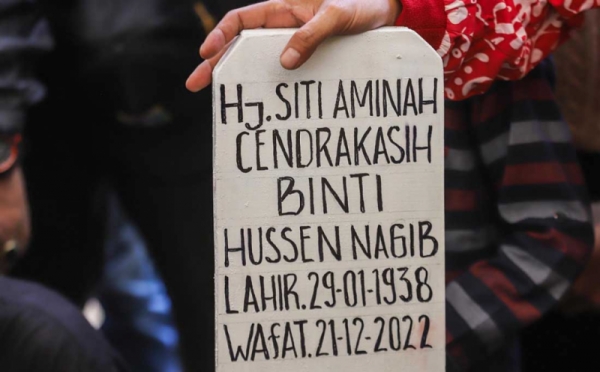 Hj. SITI AMINAH
CENDRAKASIH
BINTI
HUSSEN NAGIB
LAHIR.29-01-1938
WAfAT.21-12-2022